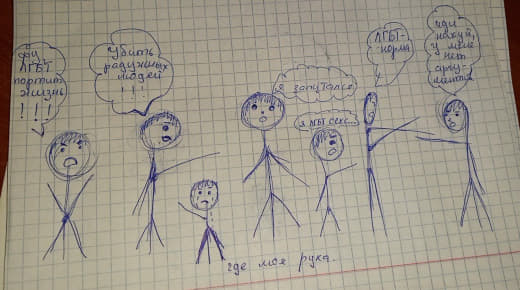 фу
ЛГБТ
портит
жизнь
!!!
Убить
радужных
людей
!!!
я запутался
я секс...
ЛГБТ-
норма
иди
нахуй,
у меня
нет
аргу-
мента
где моя рука.